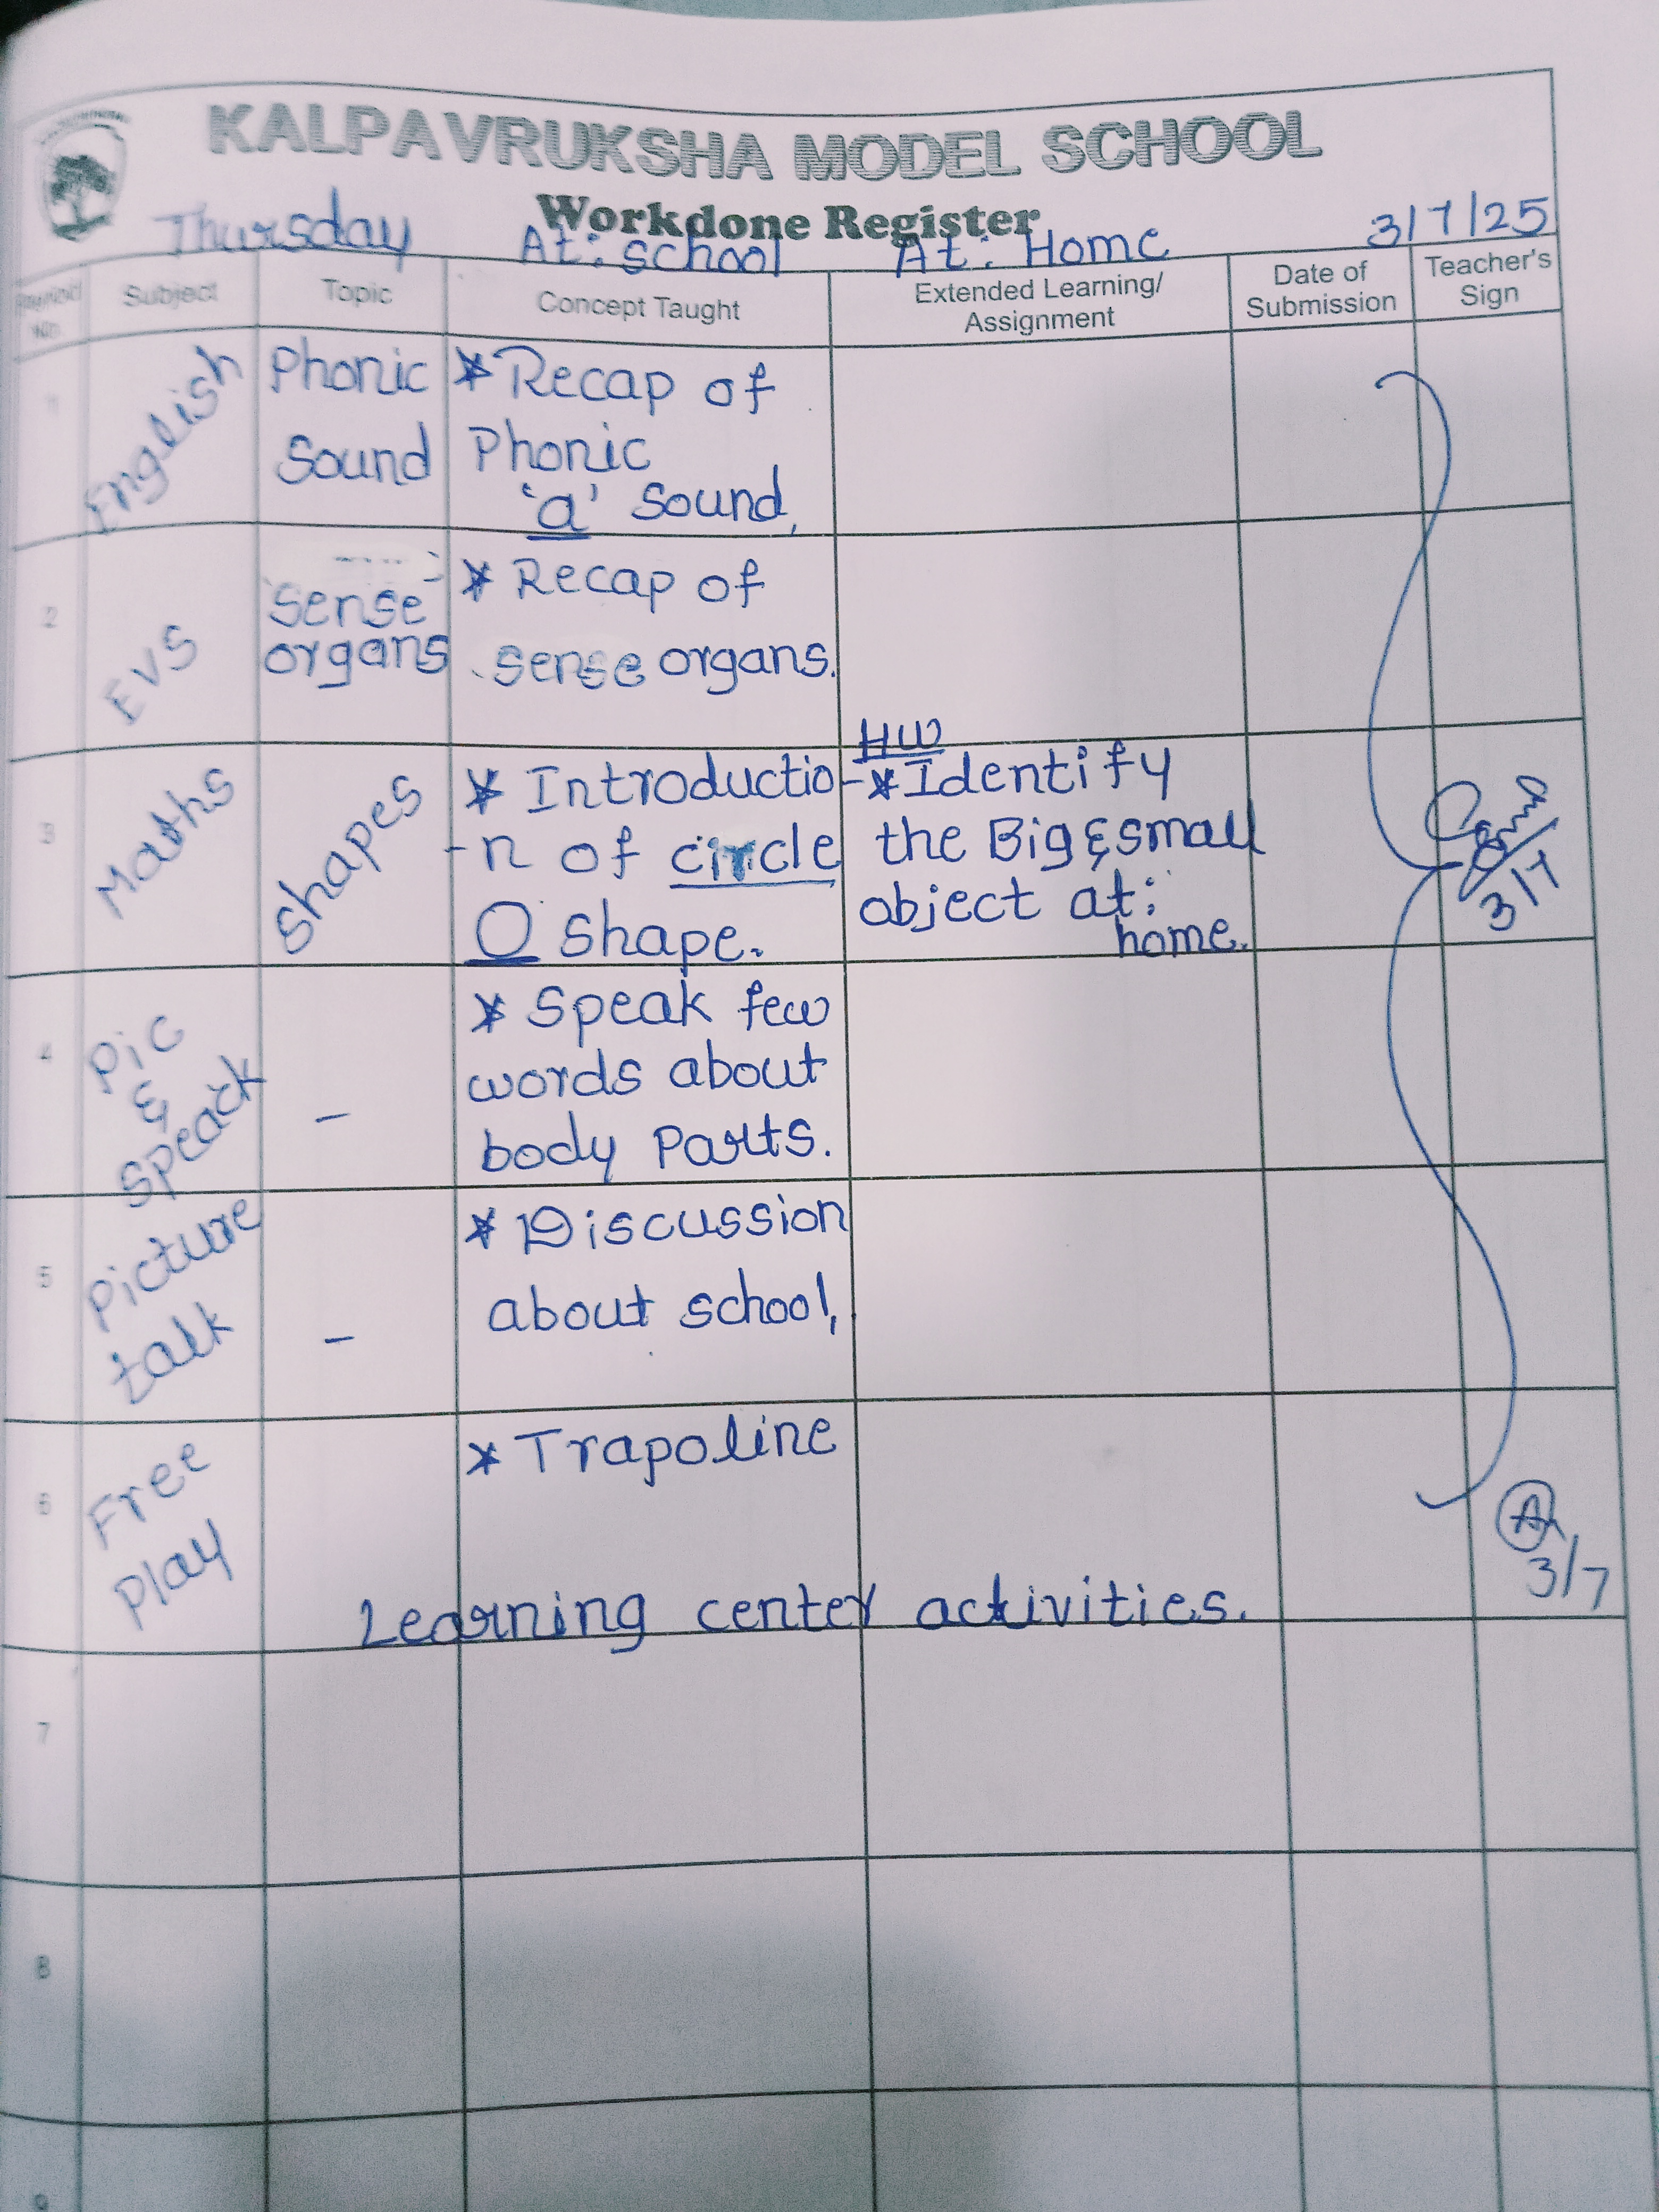 KALPAVRUKSHA MODEL SCHOOL
Workdone Register
Thursday At: school At: Home 3/7/25
Period No. Subject Topic Concept Taught Extended Learning/ Assignment Date of Submission Teacher's Sign
1 English Phonic Sound
* Recap of
Phonic
'a' Sound,
2 EVS Sense organs
* Recap of
sense organs.
3 Maths Shapes
* Introductio-
-n of circle
O shape.
HW
* Identify
the Big & small
object at:
home.
3/7
4 Pic & Speack -
* Speak few
words about
body Parts.
5 Picture talk -
* Discussion
about school,
6 Free Play
* Trapoline
3/7
Learning center activities.
7
8
9